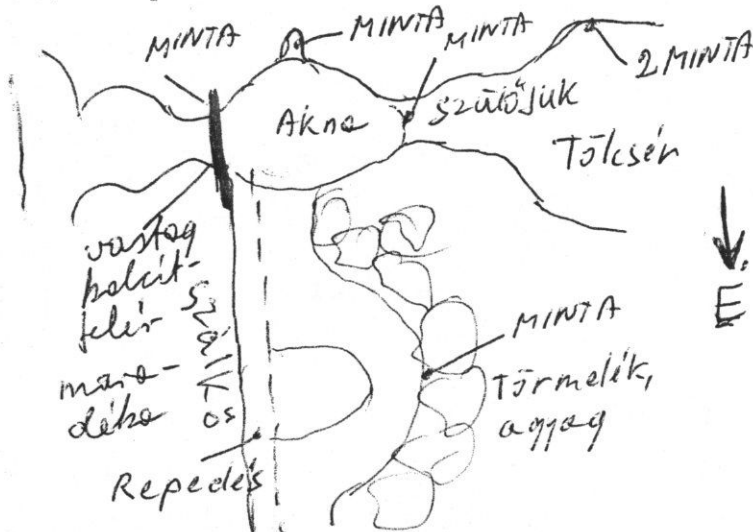 MINTA
MINTA
MINTA
2 MINTA
Akna
szülőjuk
Tölcsér
vastag
kalcit-
telér
mara-
déka
É
MINTA
Törmelék,
agyag
Repedés